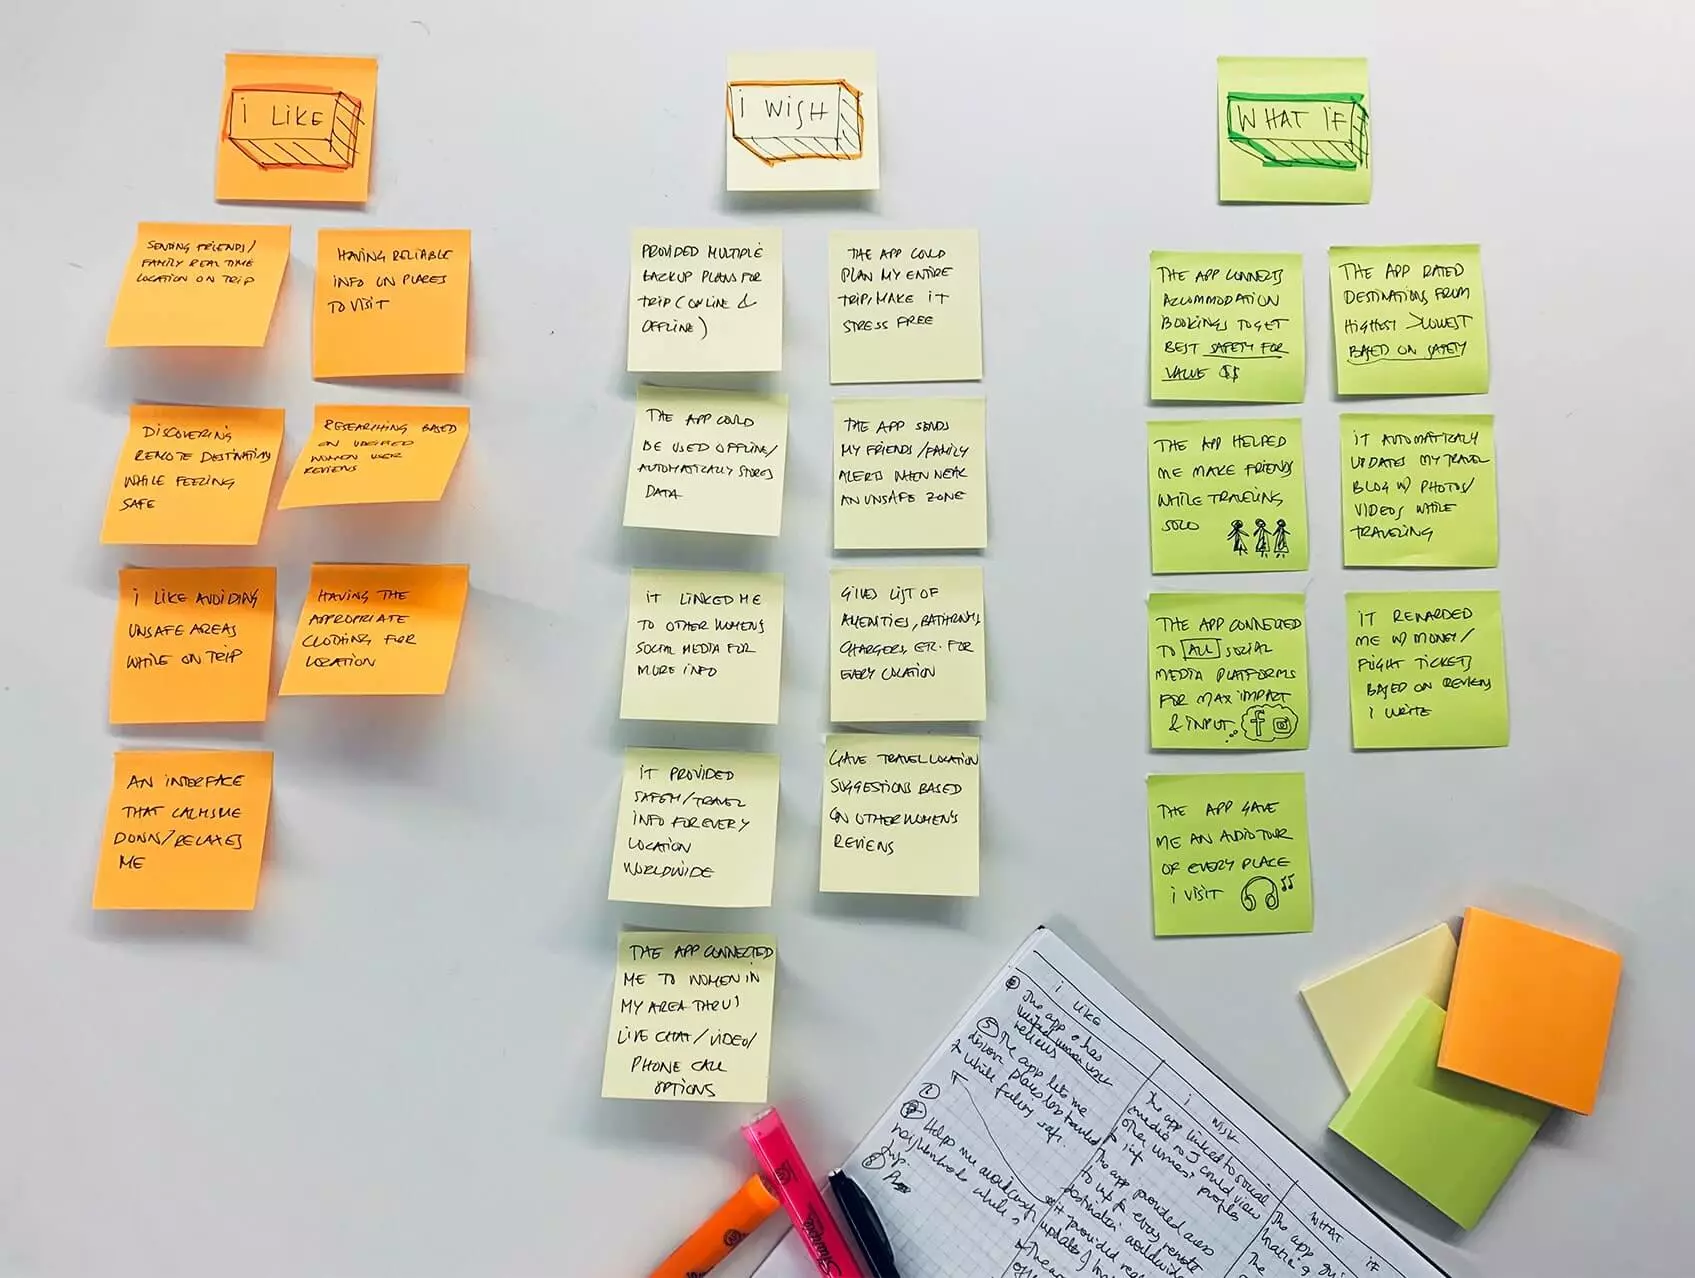 i LIKE
SENDING FRIENDS/
FAMILY REAL TIME
LOCATION ON TRIP
HAVING RELIABLE
INFO ON PLACES
TO VISIT
DISCOVERING
REMOTE DESTINATIONS
WHILE FEELING
SAFE
RESEARCHING BASED
ON VERIFIED
WOMEN USER
REVIEWS
i LIKE AVOIDING
UNSAFE AREAS
WHILE ON TRIP
HAVING THE
APPROPRIATE
CLOTHING FOR
LOCATION
AN INTERFACE
THAT CALMS ME
DOWN/RELAXES
ME
i WISH
PROVIDED MULTIPLE
BACKUP PLANS FOR
TRIP (ONLINE &
OFFLINE)
THE APP COULD
PLAN MY ENTIRE
TRIP, MAKE IT
STRESS FREE
THE APP COULD
BE USED OFFLINE/
AUTOMATICALLY STORES
DATA
THE APP SENDS
MY FRIENDS/FAMILY
ALERTS WHEN NEAR
AN UNSAFE ZONE
IT LINKED ME
TO OTHER WOMENS
SOCIAL MEDIA FOR
MORE INFO
GIVES LIST OF
AMENITIES, BATHRMS,
CHARGERS, ETC. FOR
EVERY LOCATION
IT PROVIDED
SAFETY/TRAVEL
INFO FOR EVERY
LOCATION
WORLDWIDE
GAVE TRAVEL LOCATION
SUGGESTIONS BASED
ON OTHER WOMEN'S
REVIEWS
THE APP CONNECTED
ME TO WOMEN IN
MY AREA THRU
LIVE CHAT/VIDEO/
PHONE CALL
OPTIONS
WHAT IF
THE APP CONNECTS
ACCOMMODATION
BOOKINGS TO GET
BEST SAFETY FOR
VALUE $$
THE APP RATED
DESTINATIONS FROM
HIGHEST > LOWEST
BASED ON SAFETY
THE APP HELPED
ME MAKE FRIENDS
WHILE TRAVELING
SOLO
IT AUTOMATICALLY
UPDATES MY TRAVEL
BLOG W/ PHOTOS/
VIDEOS WHILE
TRAVELING
THE APP CONNECTED
TO ALL SOCIAL
MEDIA PLATFORMS
FOR MAX IMPACT
& INPUT f
IT REWARDED
ME W/ MONEY/
FLIGHT TICKETS
BASED ON REVIEWS
I WRITE
THE APP GAVE
ME AN AUDIO TOUR
OF EVERY PLACE
I VISIT
i LIKE
The app has
reviews
The app lets me
discover places less traveled
& while feeling safe.
Helps me avoid
neighborhoods while
trip.
i WISH
The app linked to social
media so I could view
other womens' profiles
& info
The app provided
for every remote
destination worldwide
it provided
WHAT IF
The app
The
Sharpie